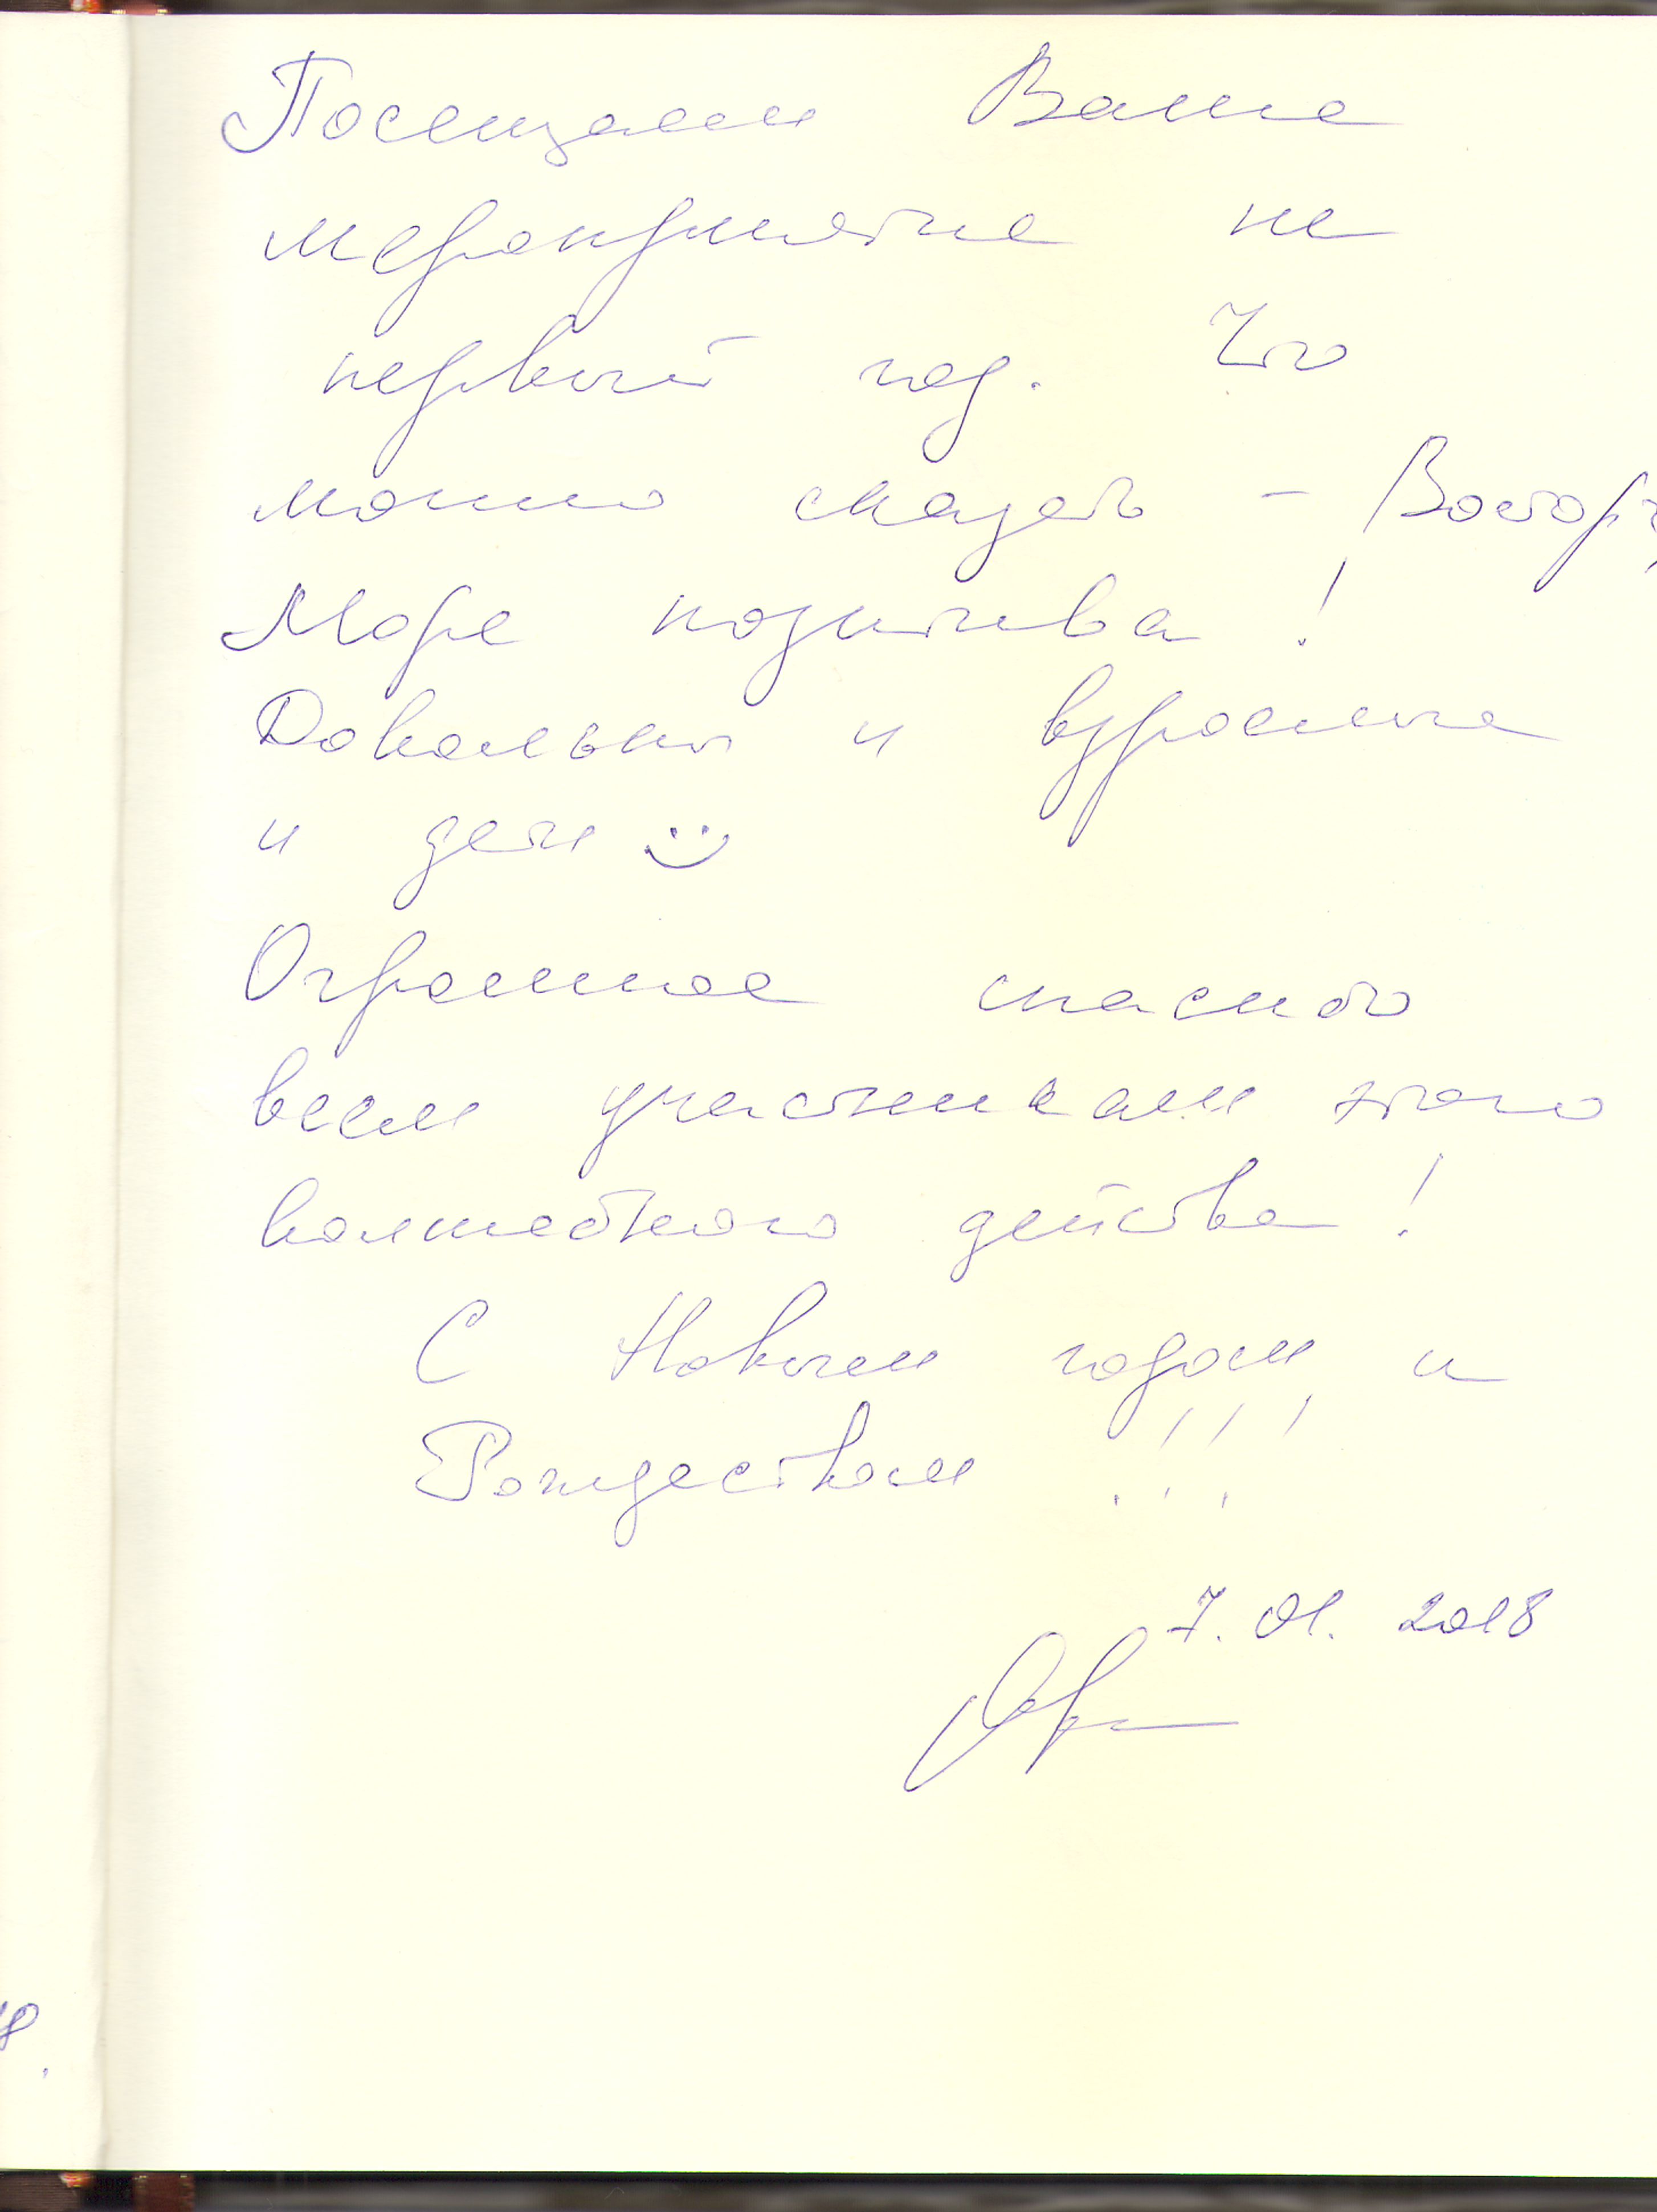 Посещаем Ваше
мероприятие не
первый год. Что
можно сказать - Восторг,
Море позитива!
Довольны и взрослые
и дети
Огромное спасибо
всем участникам этого
волшебного действа!
С Новым годом и
Рождеством!!!
7.01.2018